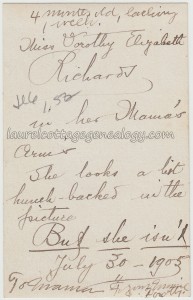 4 months old, lacking
1 week.
Miss Dorothy Elizabeth
Richards
1.50
in her Mama's
Arms
laurelcottagegenealogy.com
She looks a bit
hunch-backed in the
picture
But she isn't
July 30 - 1905
To Mama